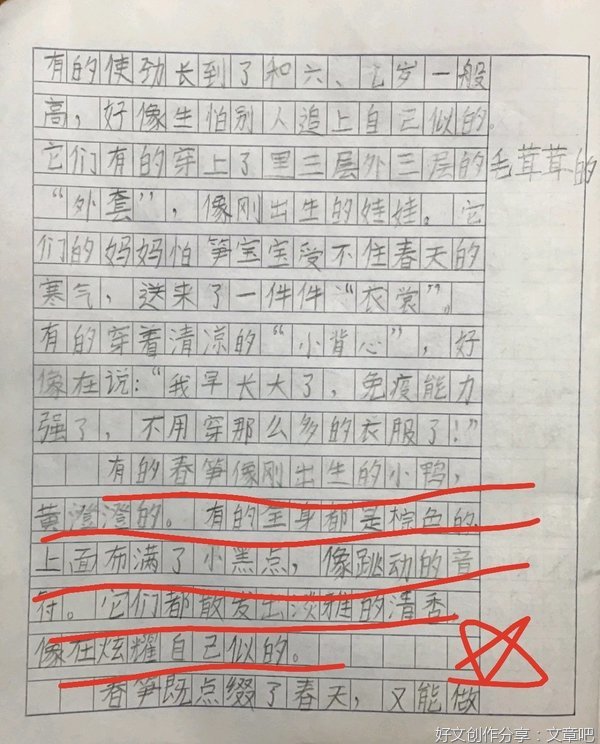 有的使劲长到了和六、七岁一般
高，好像生怕别人追上自己似的。
它们有的穿上了里三层外三层的毛茸茸的
“外套”，像刚出生的娃娃。它
们的妈妈怕笋宝宝受不住春天的
寒气，送来了一件件“衣裳”。
有的穿着清凉的“小背心”，好
像在说：“我早长大了，免疫能力
强了，不用穿那么多的衣服了！”
有的春笋像刚出生的小鸭，
黄澄澄的。有的全身都是棕色的
上面布满了小黑点，像跳动的音
符。它们都散发出淡雅的清香，
像在炫耀自己似的。
春笋既点缀了春天，又能做
好文创作分享：文章吧